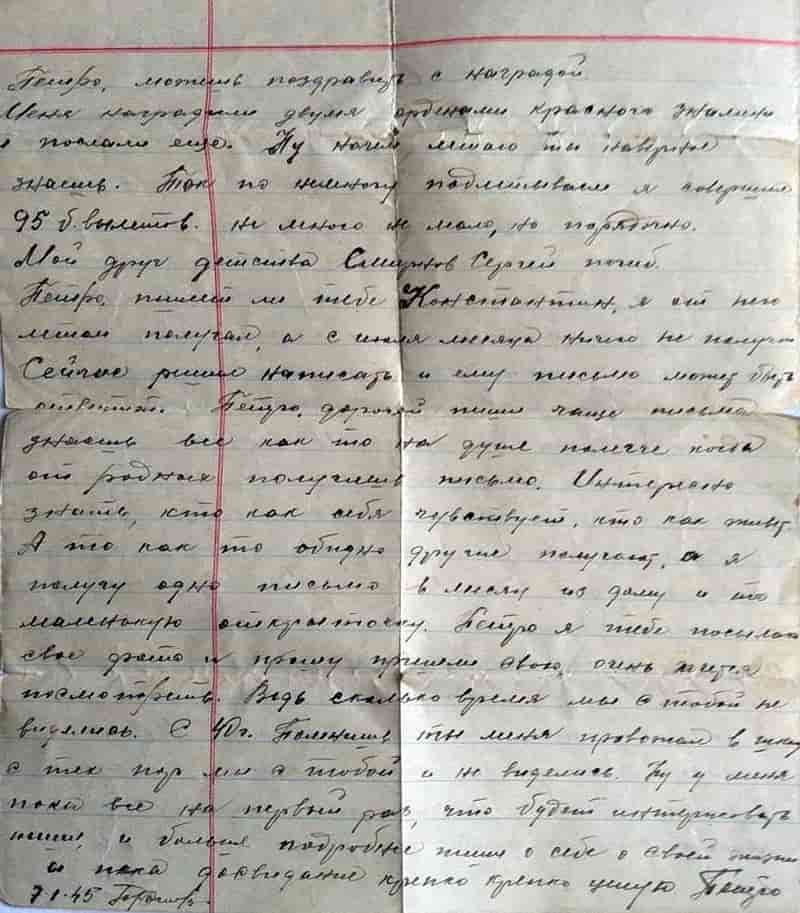 Петро, можешь поздравить с наградой.
Меня наградили двумя орденами красного знамени
и послали еще. Ну летаю ты наверное
знаешь. Так по немногу подлётываем я совершил
95 б. вылетов. не много не мало, но порядочно.
Мой друг детства Смирнов Сергей погиб.
Петро, пишет ли тебе Константин, я от него
письма получал, а с июля месяца ничего не получаю
Сейчас решил написать и ему письмо может быть
ответит. Петро, дорогой пиши чаще письма
знаешь все как то на душе полегче когда
от родных получишь письмо. Интересно
знать, кто как себя чувствует, кто как живет.
А то как то обидно другие получают, а я
получу одно письмо в месяц из дому и то
маленькую открыточку. Петро я тебе посылаю
свое фото и прошу пришли свою, очень хочется
посмотреть. Ведь сколько время мы с тобой не
виделись. С 40 г. Помнишь ты меня провожал в школу
с тех пор мы с тобой и не виделись. Ну у меня
пока все на первый раз, что будет интересовать
пиши, и больше подробнее пиши о себе о своей жизни
и пока досвидание крепко крепко целую Петро
7.1.45